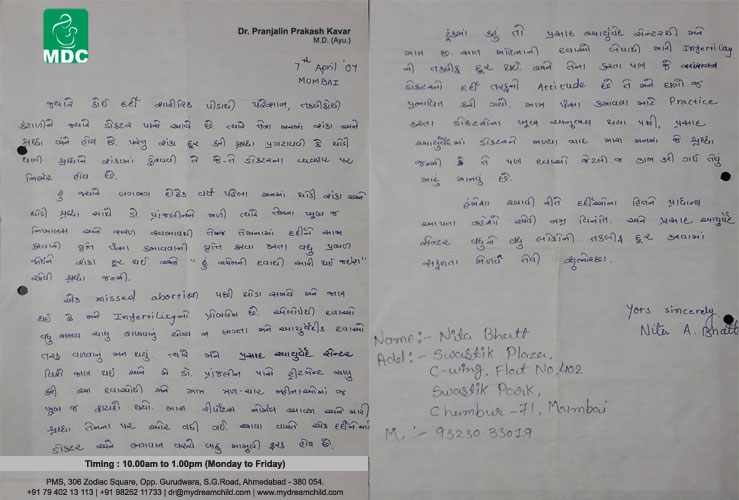 MDC
Dr. Pranjalin Prakash Kavar
M.D. (Ayu.)
7th April '07
MUMBAI
જ્યારે કોઈ દર્દી શારીરિક પીડાથી પરેશાન, તકલીફોથી
કંટાળીને જ્યારે ડોક્ટર પાસે આવે છે ત્યારે તેના મનમાં શંકા અને
શ્રદ્ધા બંને હોય છે. પરંતુ શંકા દૂર કરી શ્રદ્ધા પ્રગટાવવી કે થોડી
ઘણી શ્રદ્ધાને શંકામાં ફેરવવી તે જે-તે ડોક્ટરના વ્યવહાર પર
નિર્ભર હોય છે.
હું જ્યારે લગભગ દોઢેક વર્ષ પહેલા મનમાં થોડી શંકા અને
થોડી શ્રદ્ધા સાથે ડો. પ્રાંજલીનને મળી ત્યારે તેમના ખૂબ જ
નિખાલસ અને સરળ સ્વભાવથી તેમજ તેમનામાં દર્દીને સાજા
કરવાની વૃત્તિ પૈસા કમાવવાની વૃત્તિ કરતા વધુ પ્રબળ
જોઈને શંકા દૂર થઈ અને "હું એમની દવાથી સારી થઈ જઈશ"
એવી શ્રદ્ધા જન્મી.
એક missed abortion પછી થોડા સમયે મને જાણ
થઈ કે મને Infertility નો પ્રોબ્લેમ છે. એલોપેથી દવાઓ
વધુ સમય ચાલુ રાખવાનું યોગ્ય ન લાગતા મને આયુર્વેદીક દવાઓ
તરફ વળવાનું મન થયું. ત્યારે મને પ્રસાદ આયુર્વેદ સેન્ટર
વિશે જાણ થઈ અને મેં ડો. પ્રાંજલીન પાસે ટ્રીટમેન્ટ ચાલુ
કરી. આ દવાઓથી મને માત્ર ત્રણ-ચાર મહીનાઓમાં જ
ખૂબ જ ફાયદો થયો. મારા રીપોર્ટસ નોર્મલ આવ્યા અને મારી
શ્રદ્ધા તેમના પર ઓર વધી ગઈ. આવા વખતે એક દર્દીને માટે
ડોક્ટર અને ભગવાન વચ્ચે બહુ મામુલી ફરક હોય છે.
ટૂંકમાં કહું તો પ્રસાદ આયુર્વેદ સેન્ટરથી મને
માત્ર છ-સાત મહિનાની દવાઓ લેવાથી મારી Infertility
ની તકલીફ દૂર થઈ. અને તેના કરતા પણ જે
ડોક્ટરનો દર્દી તરફનો Attitude છે તે મને ઘણો જ
પ્રભાવિત કરી ગયો. માત્ર પૈસા કમાવવા માટે Practice
કરતા ડોક્ટરોના ખૂબ અનુભવ થયા પછી, પ્રસાદ
આયુર્વેદમાં ડોક્ટરને મળ્યા બાદ મારા મનમાં જે શ્રદ્ધા
જન્મી કે તે પણ દવાઓ જેટલી જ કામ કરી ગઈ તેવું
મારું માનવું છે.
હંમેશા આવી રીતે દર્દીઓના હિતને પ્રાધાન્ય
આપતા રહેશો એવી નમ્ર વિનંતિ. અને પ્રસાદ આયુર્વેદ
સેન્ટર વધુને વધુ લોકોની તકલીફ દૂર કરવામાં
સફળતા મેળવે તેવી શુભેચ્છા.
Yors sincerely
Nita A. Bhatt
Name:- Nita Bhatt
Add:- Swastik Plaza,
C-wing, Flat No. 402
Swastik Park,
Chembur-71, Mumbai
M.:- 93230 33019
Timing : 10.00am to 1.00pm (Monday to Friday)
PMS, 306 Zodiac Square, Opp. Gurudwara, S.G.Road, Ahmedabad - 380 054.
+91 79 402 13 113 | +91 98252 11733 | dr@mydreamchild.com | www.mydreamchild.com